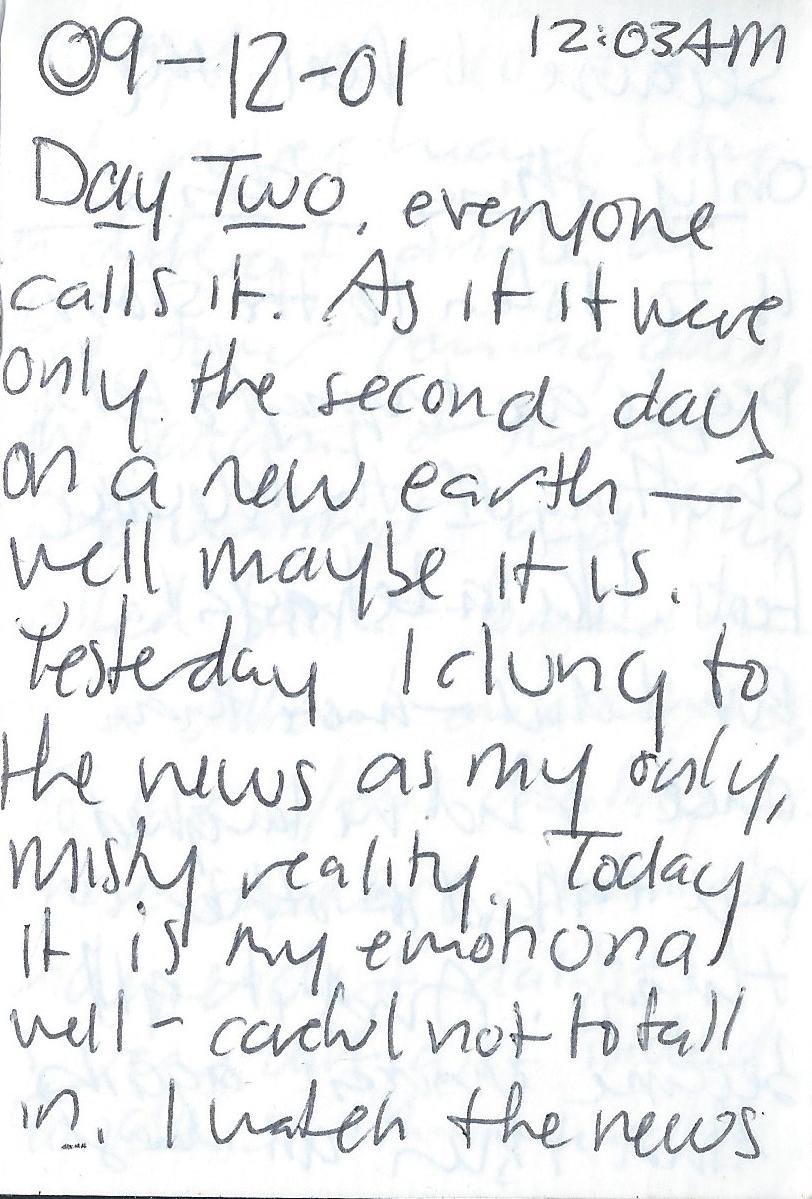 09-12-01 12:03AM
Day Two, everyone
calls it. As if it were
only the second day
on a new earth—
well maybe it is.
Yesterday I clung to
the news as my only,
misty reality. Today
it is my emotional
well - careful not to fall
in. I watch the news